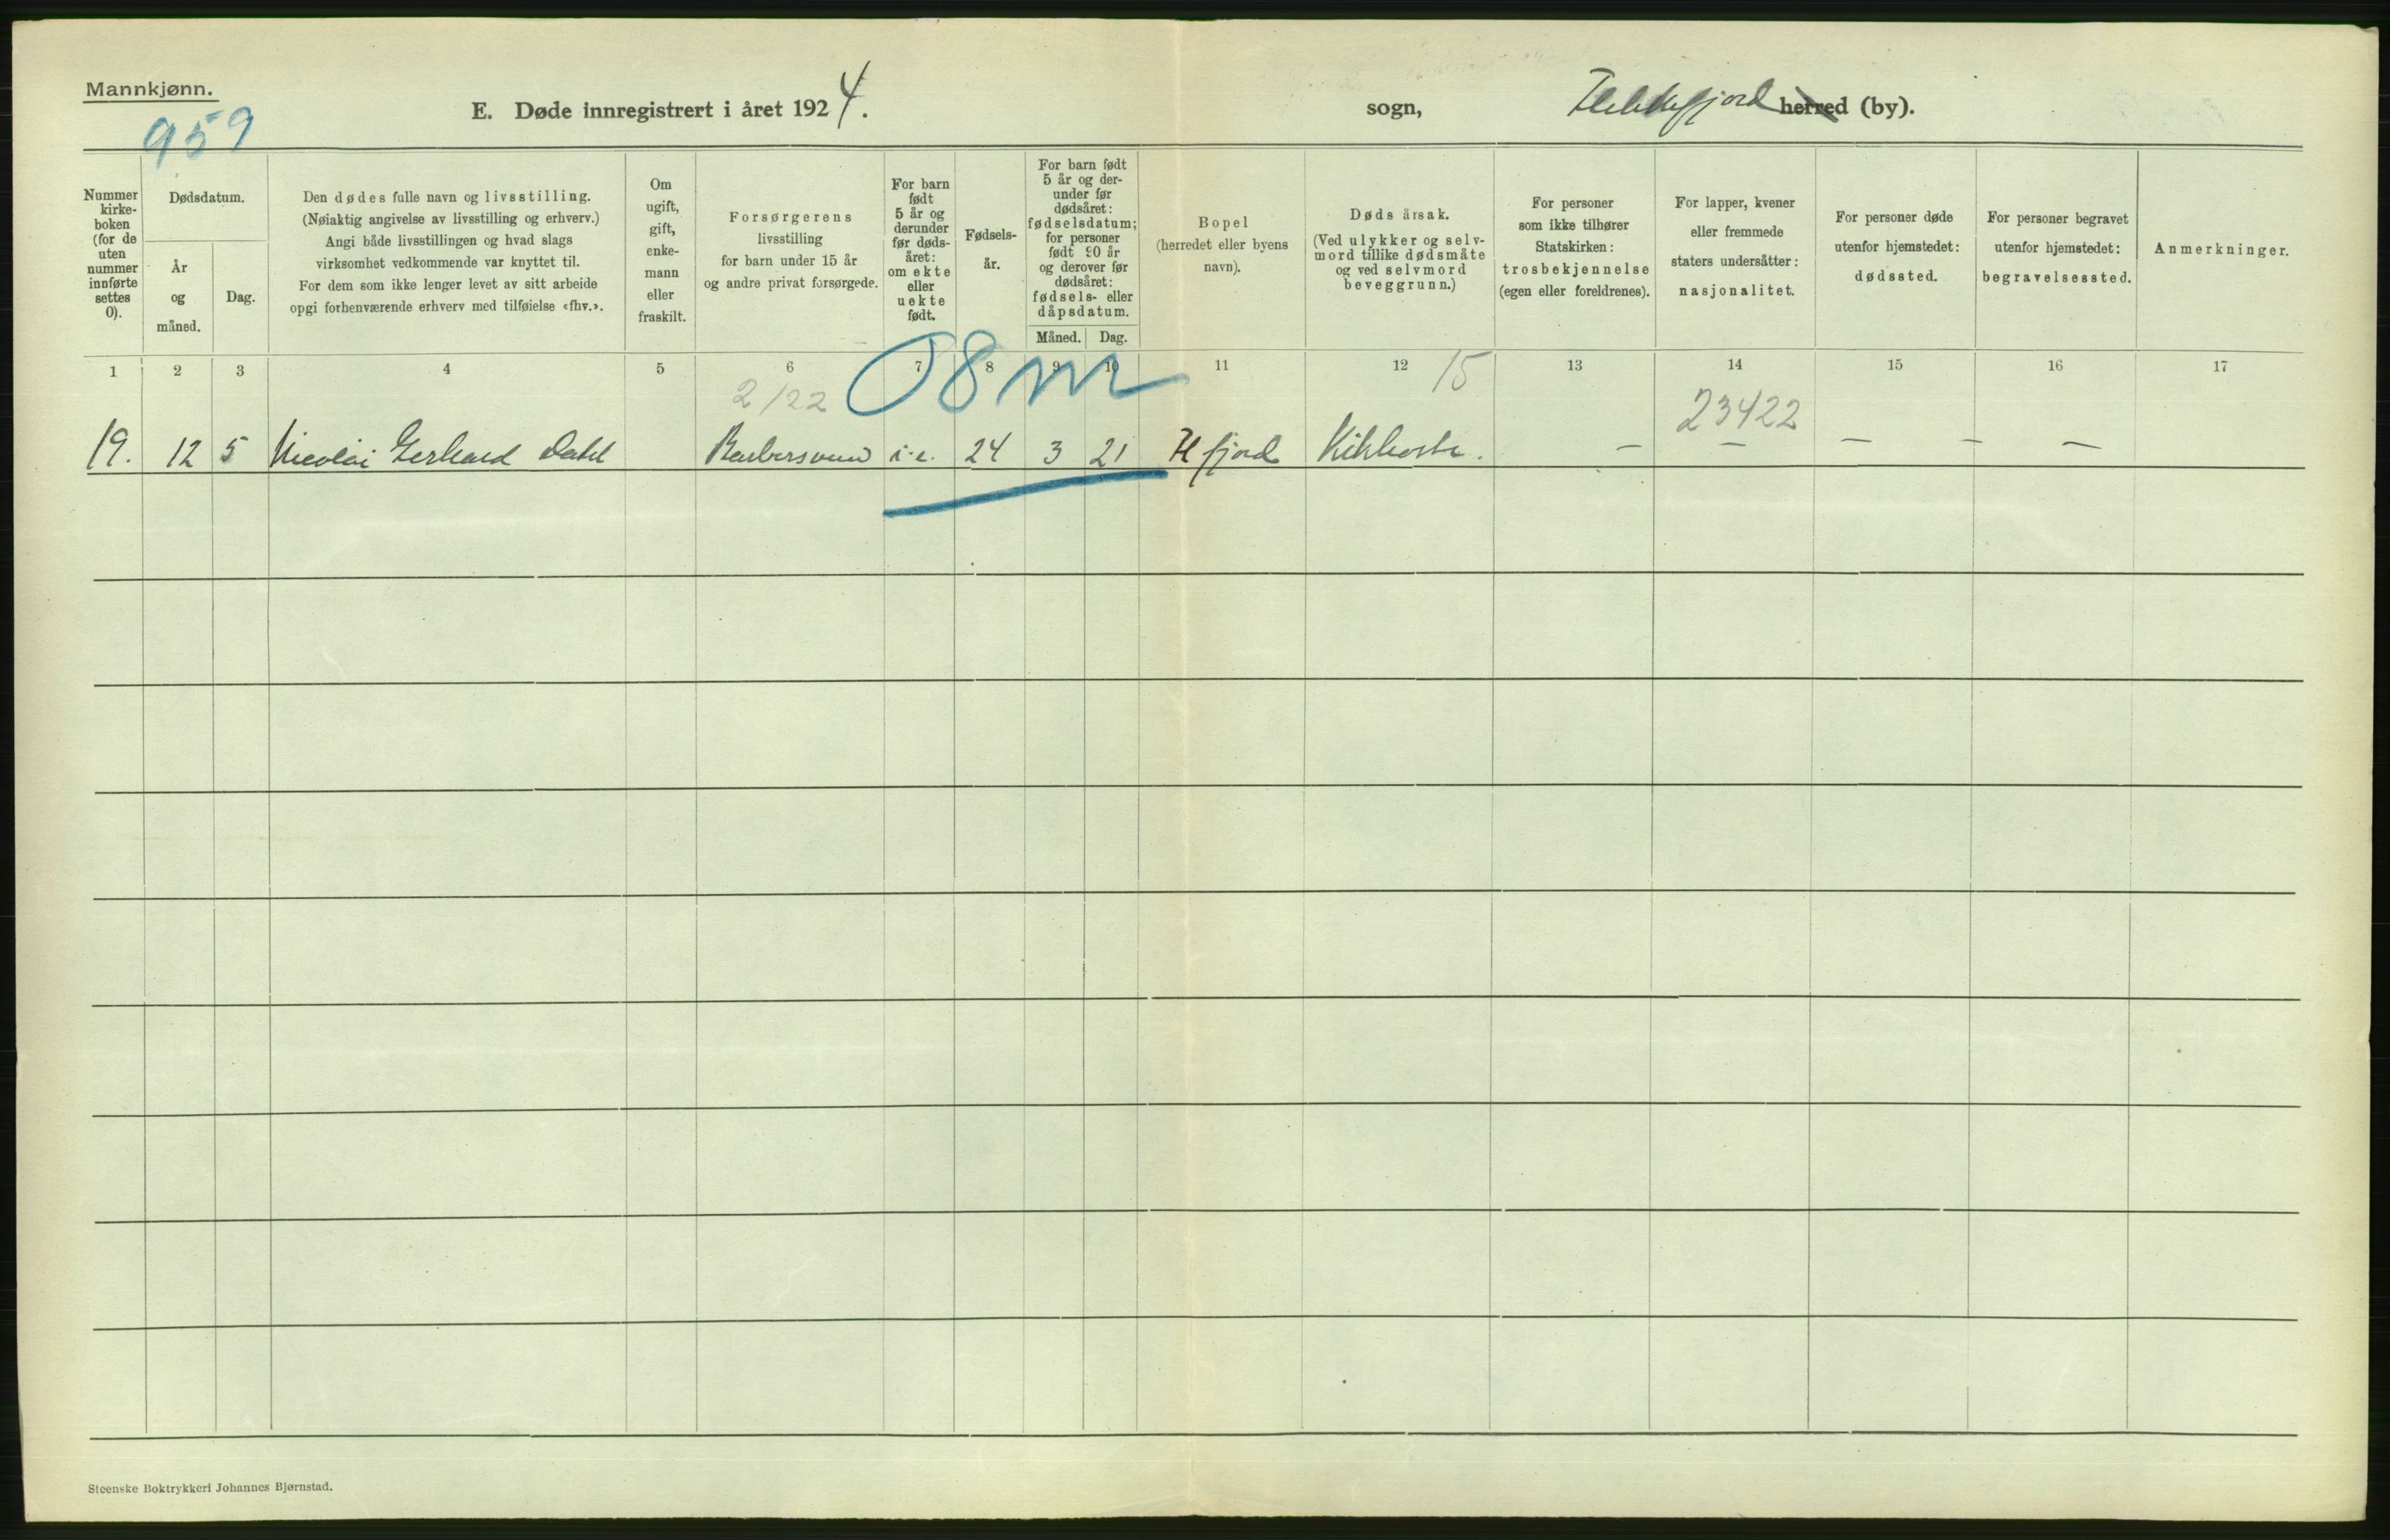 Mannkjønn.
959
E. Døde innregistrert i året 1924.
sogn,
Flekkefjord herred (by).
Nummer
kirke-
boken
(for de
uten
nummer
innførte
settes
0).
Dødsdatum.
År
og
måned.
Dag.
Den dødes fulle navn og livsstilling.
(Nøiaktig angivelse av livsstilling og erhverv.)
Angi både livsstillingen og hvad slags
virksomhet vedkommende var knyttet til.
For dem som ikke lenger levet av sitt arbeide
opgi forhenværende erhverv med tilføielse «fhv.».
Om
ugift,
gift,
enke-
mann
eller
fraskilt.
Forsørgerens
livsstilling
for barn under 15 år
og andre privat forsørgede.
For barn
født
5 år og
derunder
før døds-
året:
om ekte
eller
uekte
født.
Fødsels-
år.
For barn født
5 år og der-
under før
dødsåret:
fødselsdatum;
for personer
født 20 år
og derover før
dødsåret:
fødsels- eller
dåpsdatum.
Måned. Dag.
Bopel
(herredet eller byens
navn).
Dødsårsak.
(Ved ulykker og selv-
mord tillike dødsmåte
og ved selvmord
beveggrunn.)
For personer
som ikke tilhører
Statskirken:
trosbekjennelse
(egen eller foreldrenes).
For lapper, kvener
eller fremmede
staters undersåtter:
nasjonalitet.
For personer døde
utenfor hjemstedet:
dødssted.
For personer begravet
utenfor hjemstedet:
begravelsessted.
Anmerkninger.
1 2 3 4 5 6 7 8 9 10 11 12 13 14 15 16 17
2/22 08 m 15 23422
19. 12 5 Nicolai Gerhard Dahl Barbersvend i.e. 24 3 21 Ffjord Kikhoste. — — — — —
Steenske Boktrykkeri Johannes Bjørnstad.